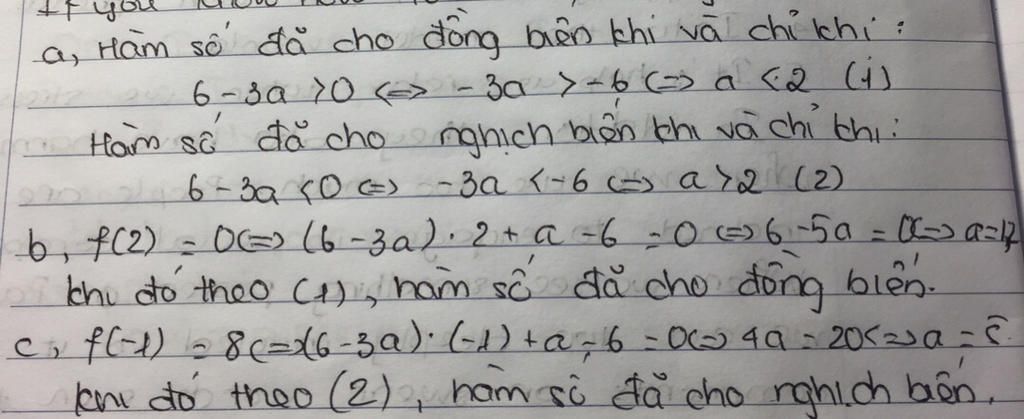 If you know how
a, Hàm số đã cho đồng biến khi và chỉ khi:
6 - 3a > 0 <=> -3a > -6 <=> a < 2 (1)
Hàm số đã cho nghịch biến khi và chỉ khi:
6 - 3a < 0 <=> -3a < -6 <=> a > 2 (2)
b, f(2) = 0 <=> (6 - 3a) · 2 + a - 6 = 0 <=> 6 - 5a = 0 <=> a = 1,2
khi đó theo (1), hàm số đã cho đồng biến.
c, f(-1) = 8 <=> (6 - 3a) · (-1) + a - 6 = 0 <=> 4a = 20 <=> a = 5
khi đó theo (2), hàm số đã cho nghịch biến.